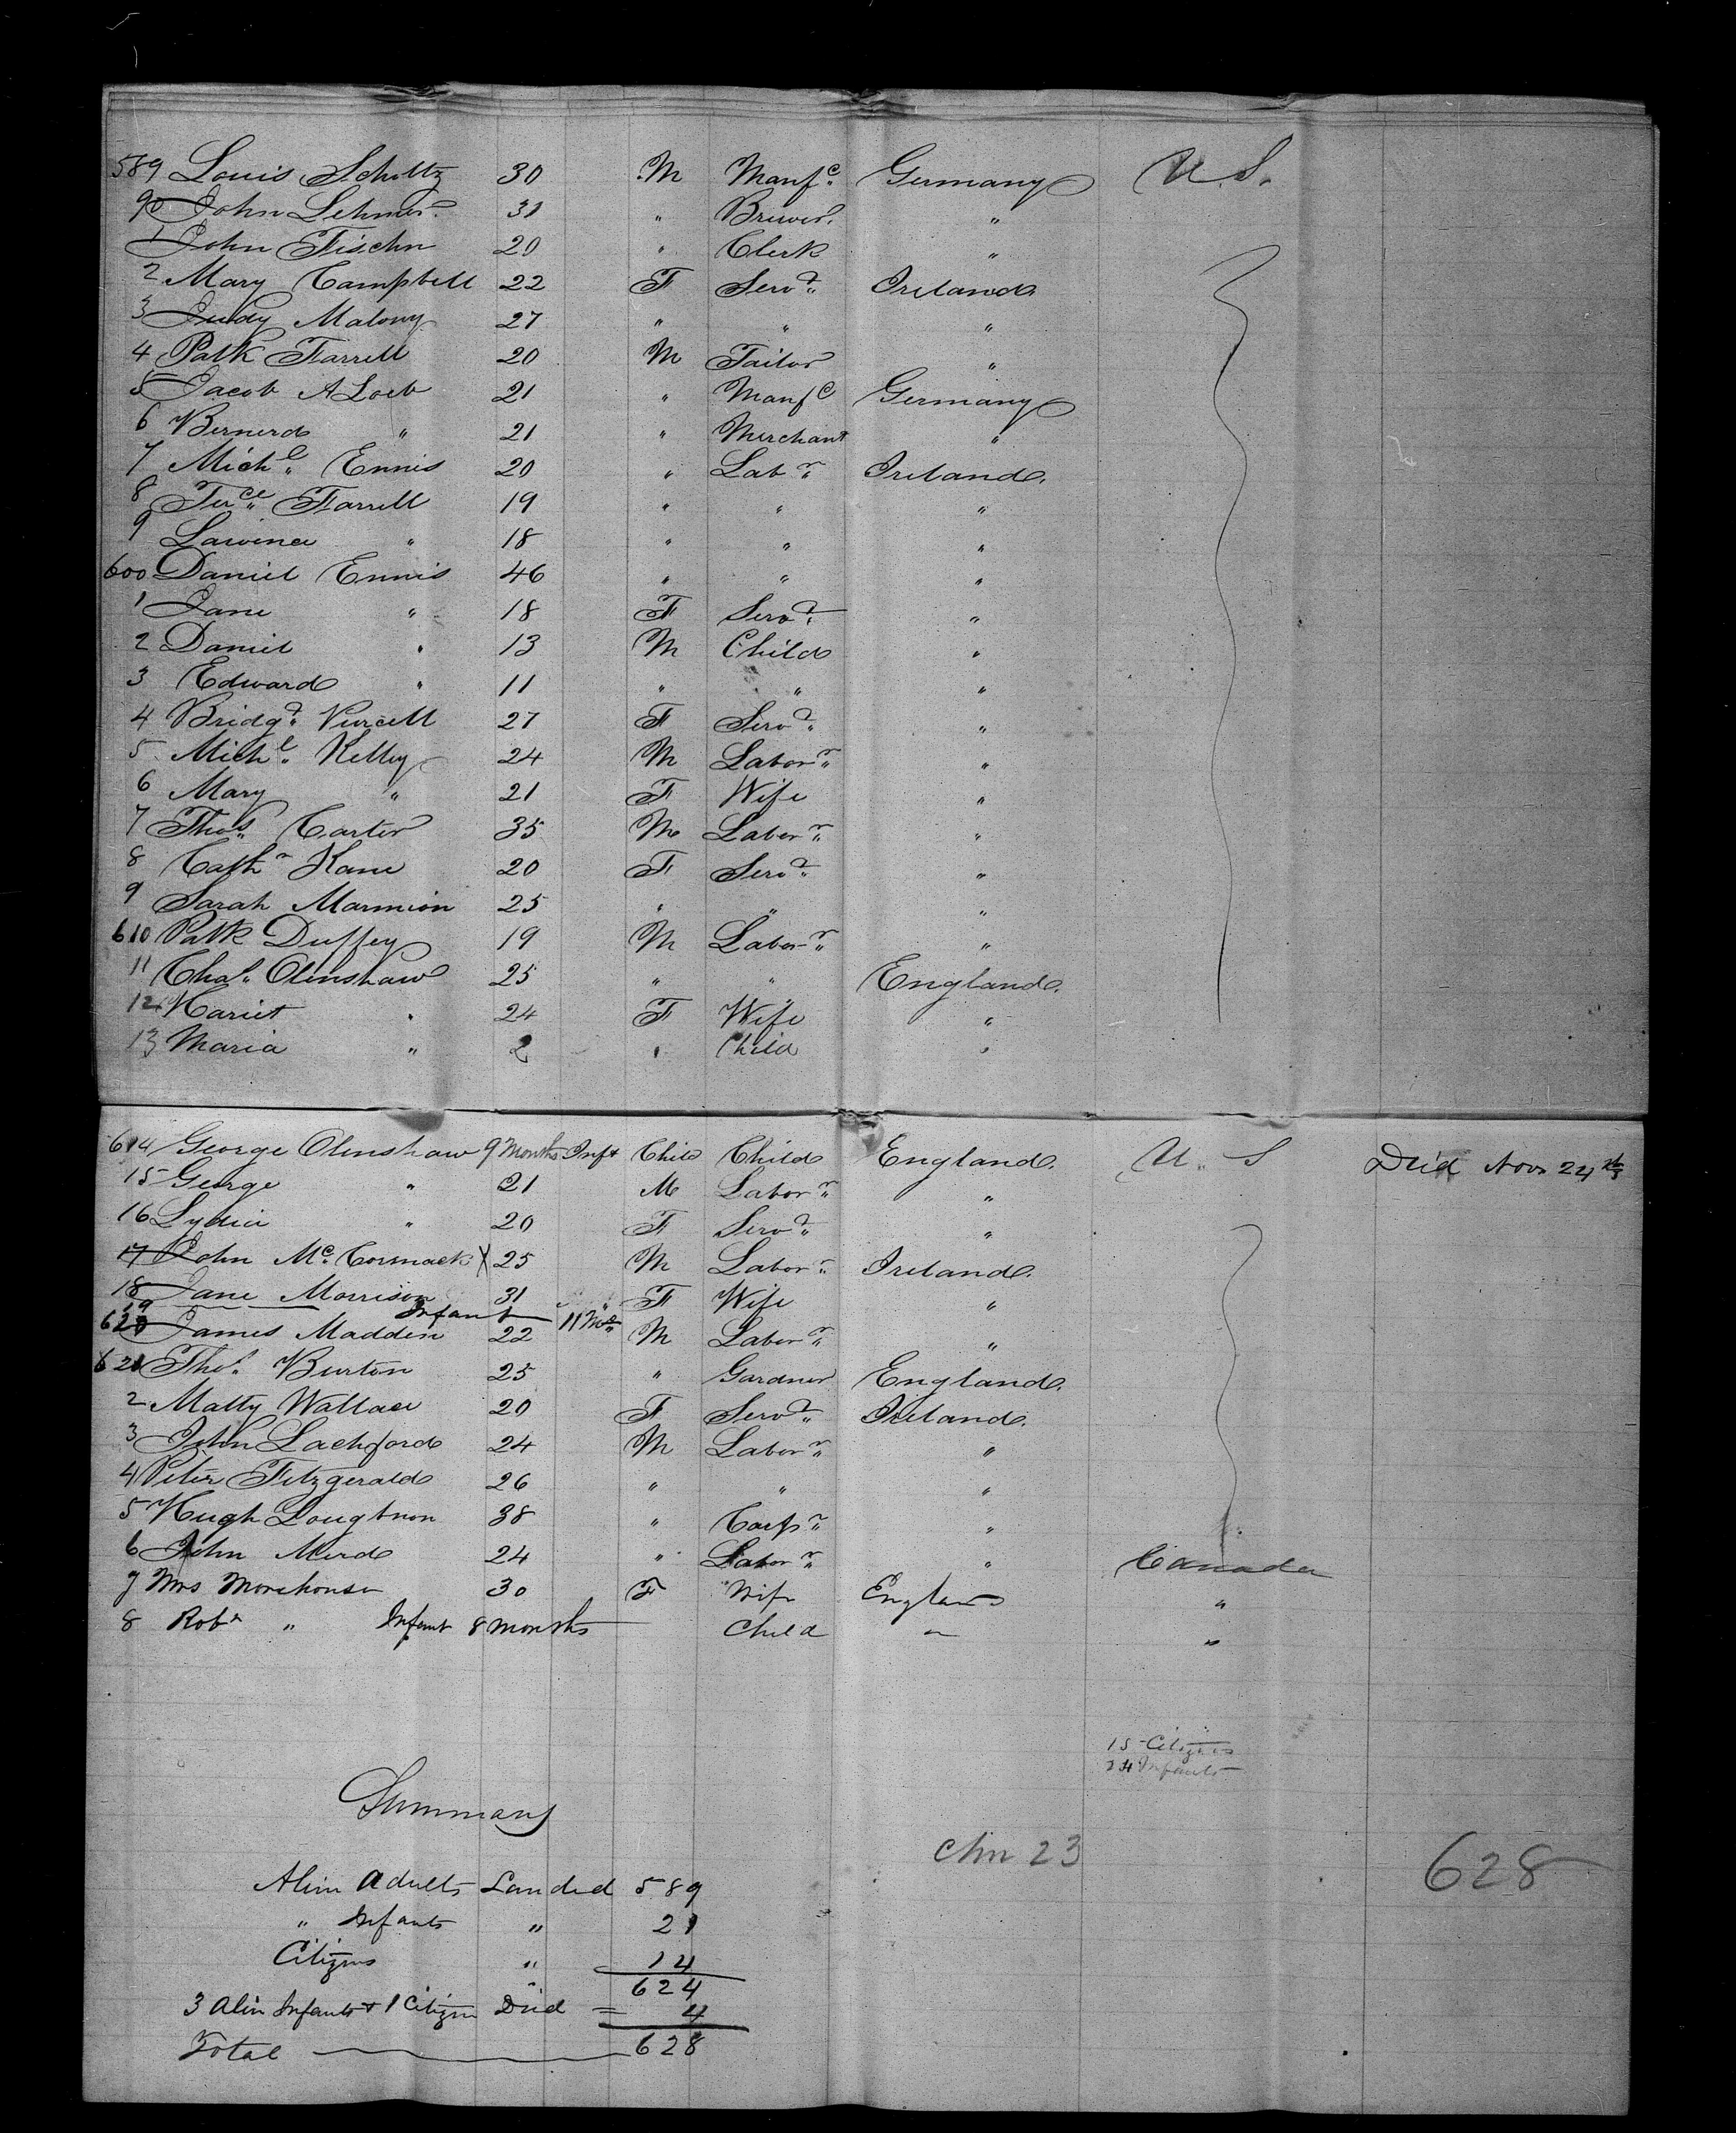 589 Louis Scholtz 30 M Manfc. Germany U.S.
90 John Lehmer. 31 " Brewer. "
1 John Fischn 20 " Clerk "
2 Mary Campbell 22 F Servt. Ireland
3 Judy Malony 27 " " "
4 Patk Farrell 20 M Tailor "
5 Jacob A Loeb 21 " Manfc Germany
6 Bernerd " 21 " Merchant "
7 Michl. Ennis 20 " Labr. Ireland.
8 Terce. Farrell 19 " " "
9 Lawince " 18 " " "
600 Daniel Ennis 46 " " "
1 Jane " 18 F Servt. "
2 Daniel " 13 M Child "
3 Edward " 11 " " "
4 Bridgt. Purcell 27 F Servt. "
5 Michl. Kelley 24 M Laborr. "
6 Mary " 21 F Wife "
7 Thos. Carter 35 M Laborr. "
8 Cathn Kane 20 F Servt. "
9 Sarah Marmion 25 " " "
610 Patk Duffey 19 M Laborr. "
11 Chas. Olenshaw 25 " " England.
12 Hariet " 24 F Wife "
13 Maria " 2 " Child "
614 George Olenshaw 9 Months Inft Child Child England. U.S Died Nov 24th
15 George " 21 M Laborr. "
16 Lydia " 20 F Servt. "
17 John Mc.Cormack X 25 M Laborr. Ireland.
18 Jane Morrison 31 " F Wife "
19 Infant 11 Mos
620 James Madden 22 M Laborr. "
621 Thos. Burton 25 " Gardner England.
2 Matty Wallace 20 F Servt. Ireland.
3 John Lachford 24 M Laborr. "
4 Peter Fitzgerald 26 " " "
5 Hugh Lougbnon 38 " Carpr. "
6 John Merd 24 " Laborr. " Canada
7 Mrs Morehouse 30 F Wife England "
8 Robt " Infant 8 months Child " "
15 Citizens
24 Infants
Summary
Chn 23
628
Alien Adults Landed 589
" Infants " 21
Citizens " 14
624
3 Alien Infants & 1 Citizen Died = 4
Total 628